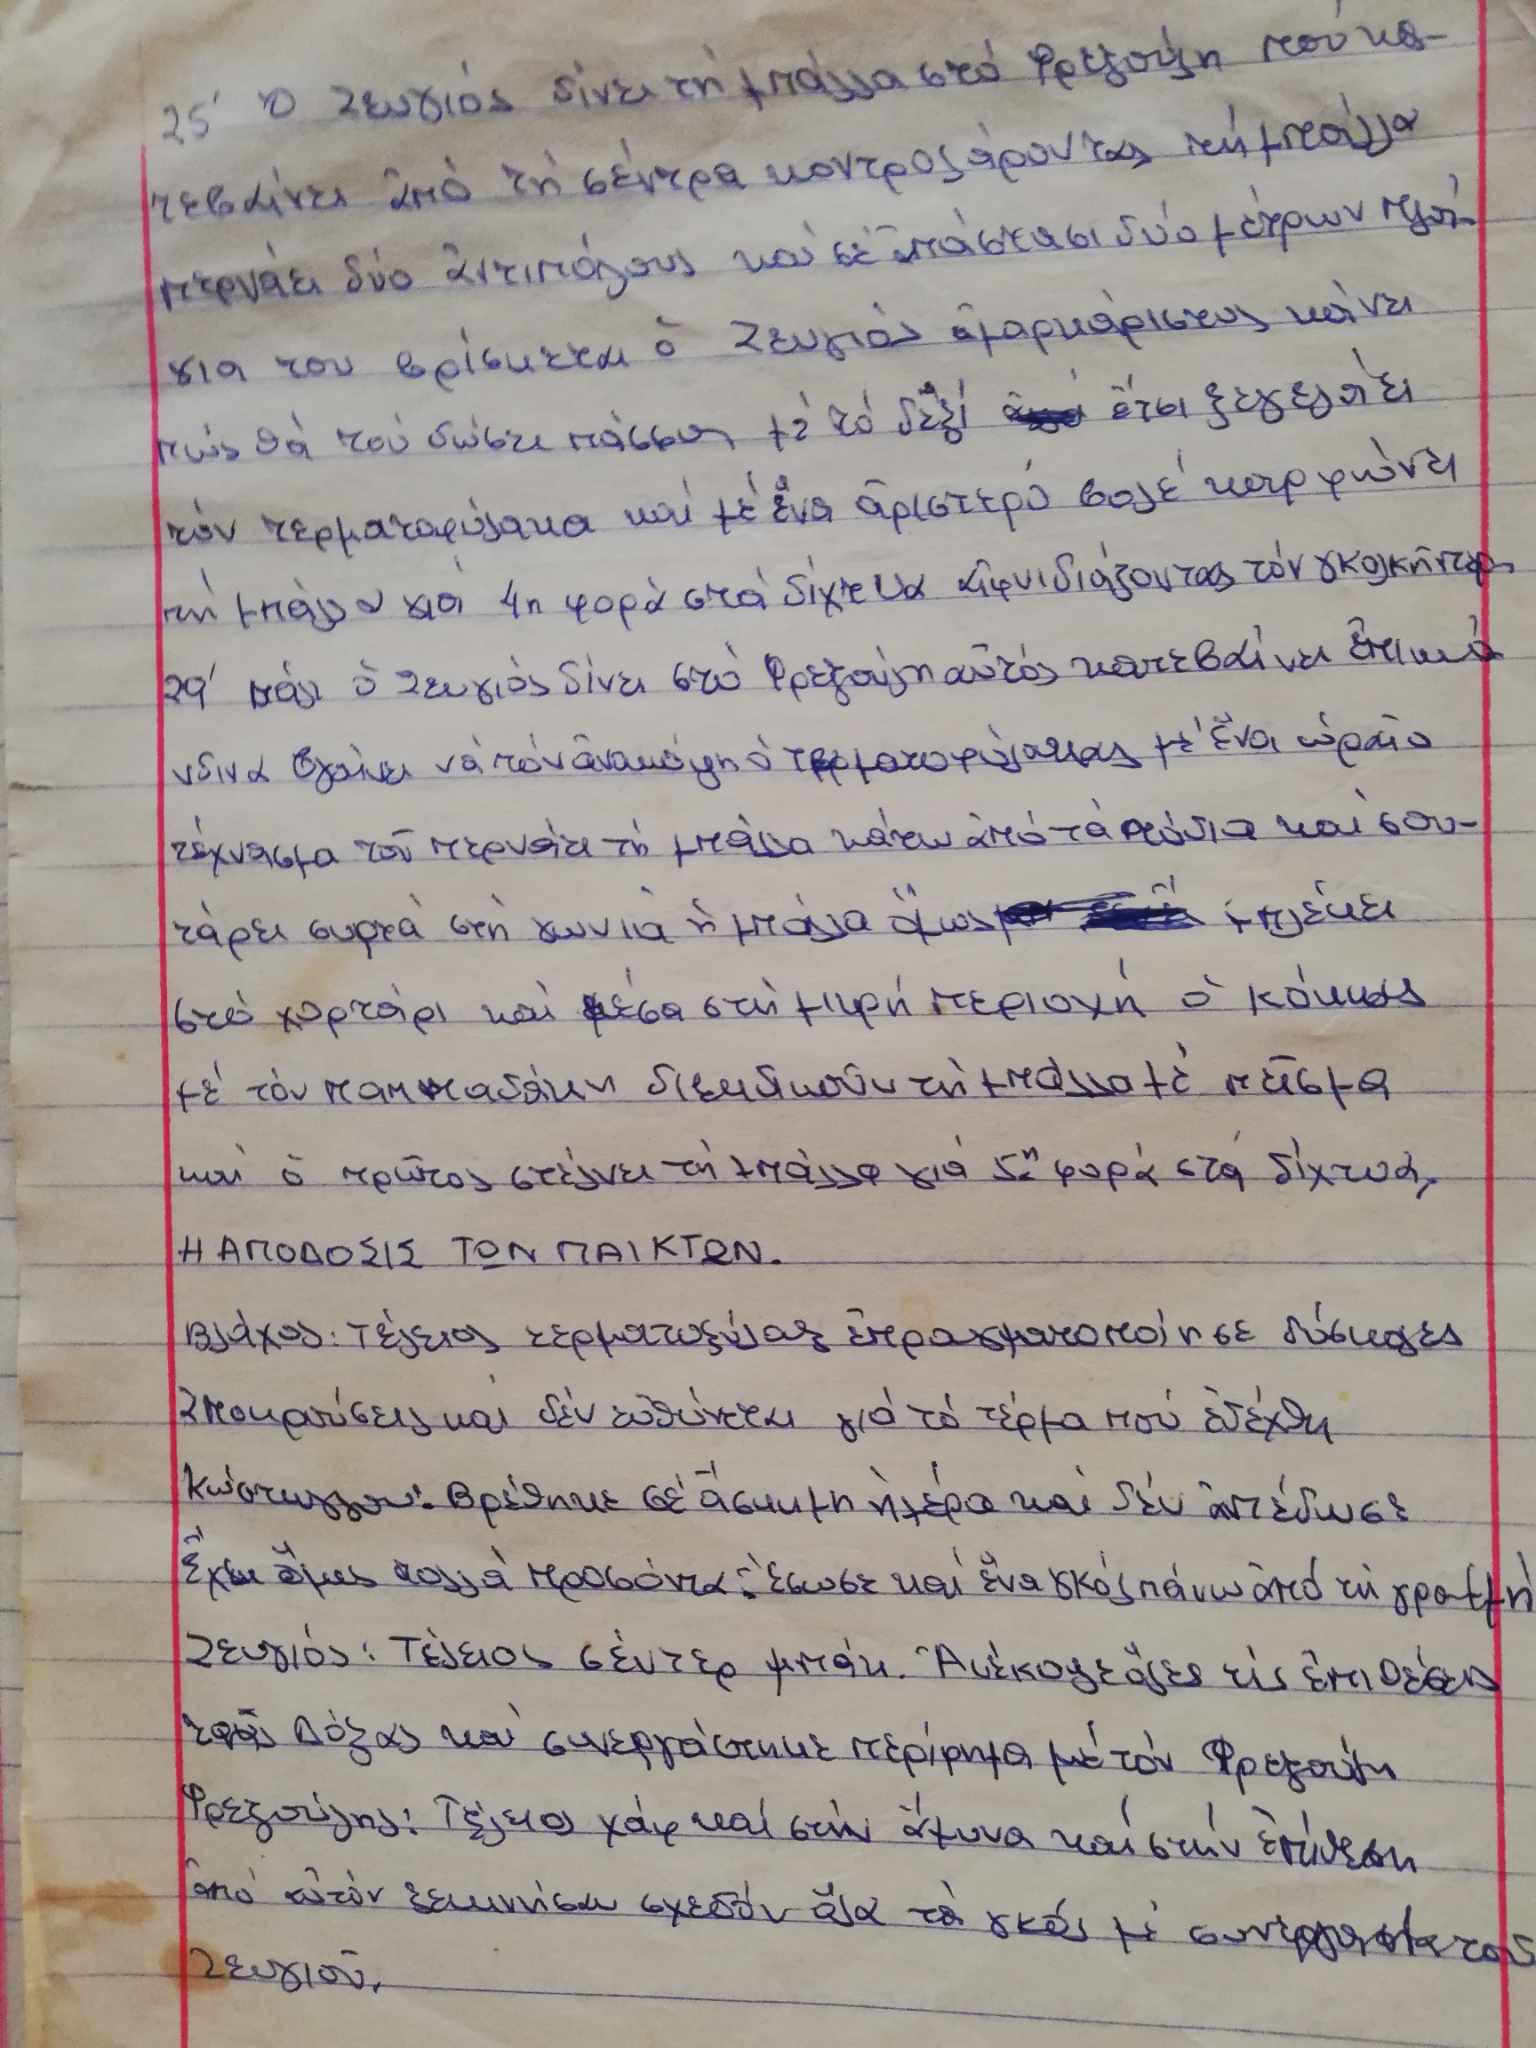 25' Ὁ Ζευγιός δίνει τή μπάλλα στό Φρεζούλη πού κα-
τεβαίνει ἀπό τή σέντρα κοντρολάροντας τή μπάλλα
περνάει δύο ἀντιπάλους καί σέ ἀπόστασι δύο μέτρων πλάι
για του βρίσκεται ὁ Ζευγιός ἀμαρκάριστος κάνει
πώς θά τού δώσει πάσσα μέ τό δεξί ἔτσι ξεγελάει
τόν τερματοφύλακα καί μέ ἕνα ἀριστερό βολέ καρφώνει
τή μπάλα γιά 4η φορά στά δίχτυα αἰφνιδιάζοντας τόν γκολκήπερ
29' πάλι ὁ Ζευγιός δίνει στό Φρεζούλη αὐτός κατεβαίνει ἐπικί
νδινα βγαίνει νά τόν ἀνακόψη ὁ τερματοφύλακας μέ ἕνα ὡραῖο
τέχνασμα τοῦ περνάει τή μπάλα κάτω ἀπό τά πόδια καί σου-
τάρει συρτά στή γωνιά ἡ μπάλλα ὅμως μπλέκει
στό χορτάρι καί μέσα στή μικρή περιοχή ὁ Κόκκος
μέ τόν παππαδάκη διεκδικοῦν τή μπάλλα μέ πεῖσμα
καί ὁ πρῶτος στέλνει τή μπάλλα γιά 5η φορά στά δίχτυα,
Η ΑΠΟΔΟΣΙΣ ΤΩΝ ΠΑΙΚΤΩΝ.
Βλάχος: Τέλειος τερματοφύλαξ ἐπραγματοποίησε δύσκολες
ἀποκρούσεις καί δέν εὐθύνεται γιά τό τέρμα πού ἐδέχθη
Κώσταγλου: Βρέθηκε σέ ἄσχημη ἡμέρα καί δέν ἀπέδωσε
ἔχει ὅμως πολλά προσόντα: ἔσωσε καί ἕνα γκόλ πάνω ἀπό τή γραμμή
Ζευγιός: Τέλειος σέντερ μπάκ. Ἀνέκοψε ὅλες τίς ἐπιθέσεις
τῆς Δόξας καί συνεργάστηκε περίφημα μέ τόν Φρεζούλη
Φρεζούλης: Τέλειος χάφ καί στήν ἄμυνα καί στήν ἐπίθεση
ἀπό αὐτόν ξεκινήσαν σχεδόν ὅλα τά γκόλ μέ συνεργασία τοῦ
Ζευγιοῦ.